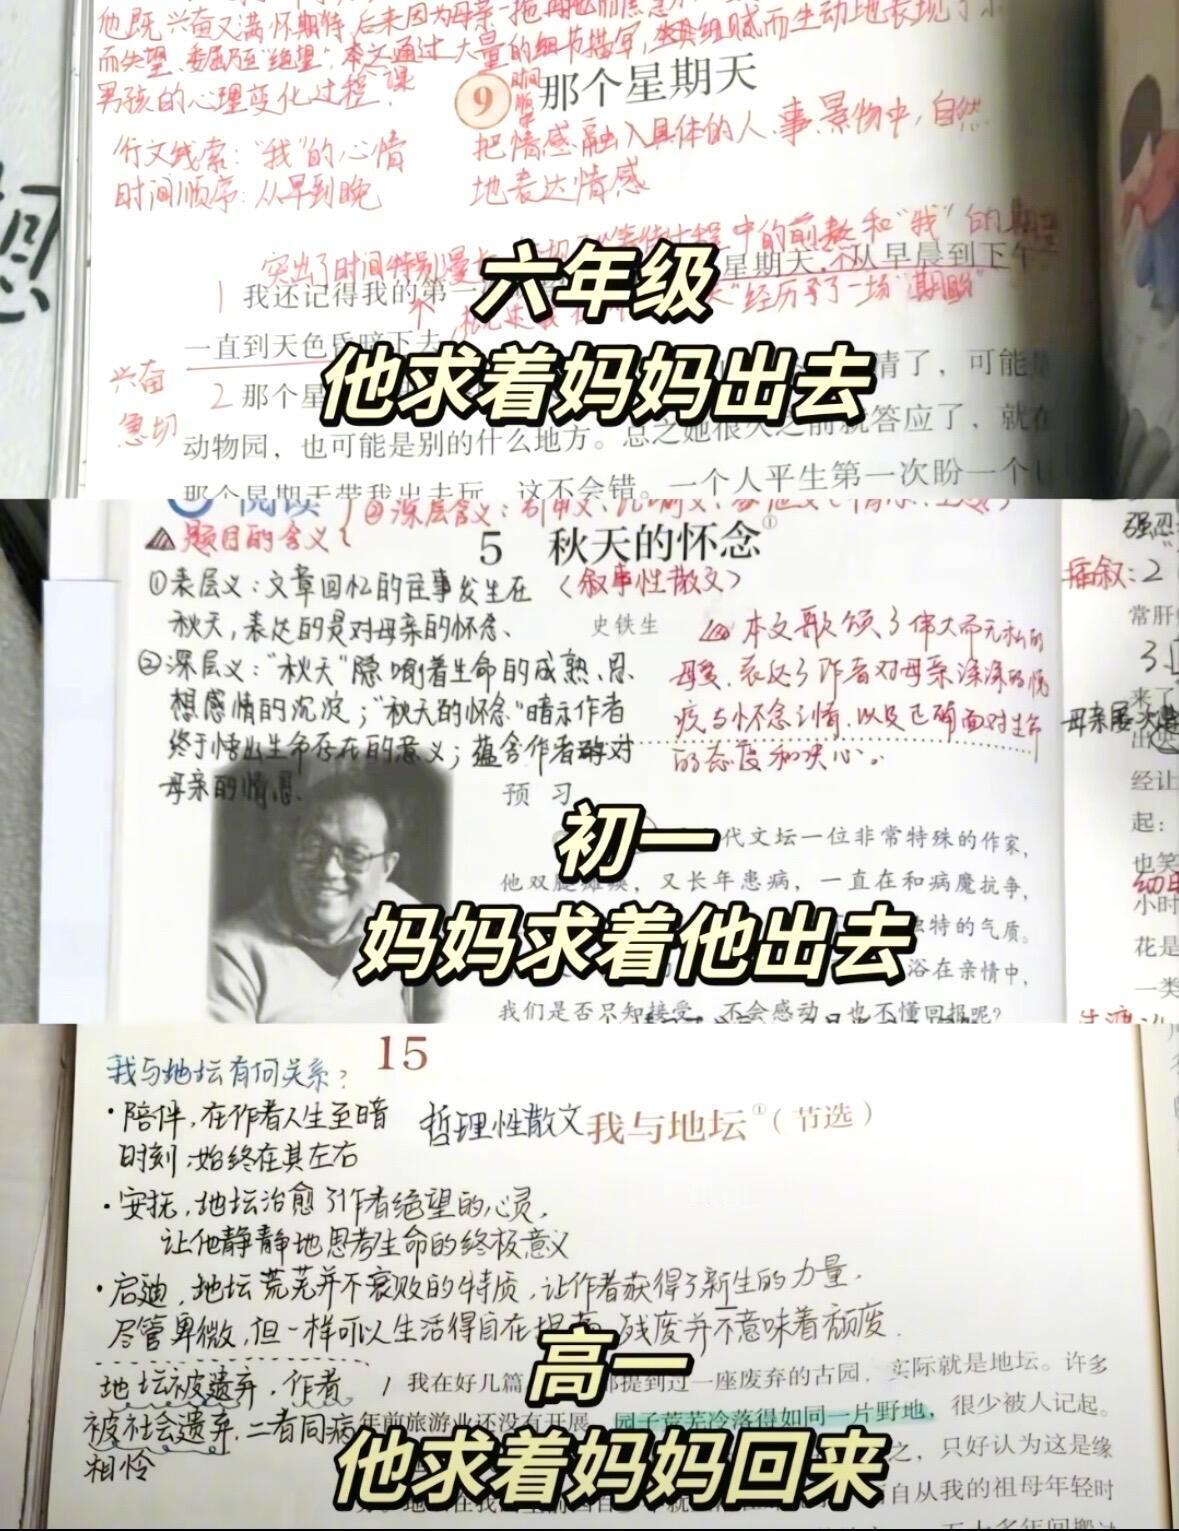 他既兴奋又满怀期待,后来因为母亲一拖再拖而焦急
而失望、委屈乃至"绝望",本文通过大量的细节描写,而生动地表现了小
男孩的心理变化过程.
⑨ 那个星期天
行文线索:"我"的心情
时间顺序:从早到晚
把情感融入具体的人、事、景物中,自然
地表达情感
突出了时间特别漫长
中的煎熬和"我"的期盼
1 我还记得我的第一
星期天,从早晨到下午
经历了一场"期盼"
一直到天色昏暗下去
兴奋
急切
2 那个星
清了,可能是
动物园,也可能是别的什么地方。总之她很久之前就答应了,就在
那个星期天带我出去玩,这不会错。一个人平生第一次盼一个日
六年级
他求着妈妈出去
阅读
题目的含义
②深层含义:
5 秋天的怀念①
(叙事性散文)
史铁生
①表层义:文章回忆的往事发生在
秋天,表达的是对母亲的怀念、
②深层义:"秋天"隐喻着生命的成熟、思
想感情的沉淀;"秋天的怀念"暗示作者
终于悟出生命存在的意义;蕴含作者对
母亲的情思.
本文歌颂了伟大而无私的
母爱,表达了作者对母亲深深的愧
疚与怀念之情,以及正确面对生命
的态度和决心。
预 习
代文坛一位非常特殊的作家,
他双腿瘫痪,又长年患病,一直在和病魔抗争,
独特的气质。
浴在亲情中,
我们是否只知接受,不会感动,也不懂回报呢?
强忍
插叙:2
常肝
3
来了
母亲
经让
起:
也笑
小时
花是
一类
初一
妈妈求着他出去
15
我与地坛有何关系?
·陪伴,在作者人生至暗
时刻,始终在其左右
哲理性散文 我与地坛①(节选)
·安抚,地坛治愈了作者绝望的心灵,
让他静静地思考生命的终极意义
·启迪,地坛荒芜并不衰败的特质,让作者获得了新生的力量.
尽管卑微,但一样可以生活得自在 残废并不意味着颓废.
地坛被遗弃,作者
被社会遗弃,二者同病
相怜
1 我在好几篇 都提到过一座废弃的古园,实际就是地坛。许多
年前旅游业还没有开展,园子荒芜冷落得如同一片野地,很少被人记起。
之,只好认为这是缘
自从我的祖母年轻时
五十多年间搬过
高一
他求着妈妈回来